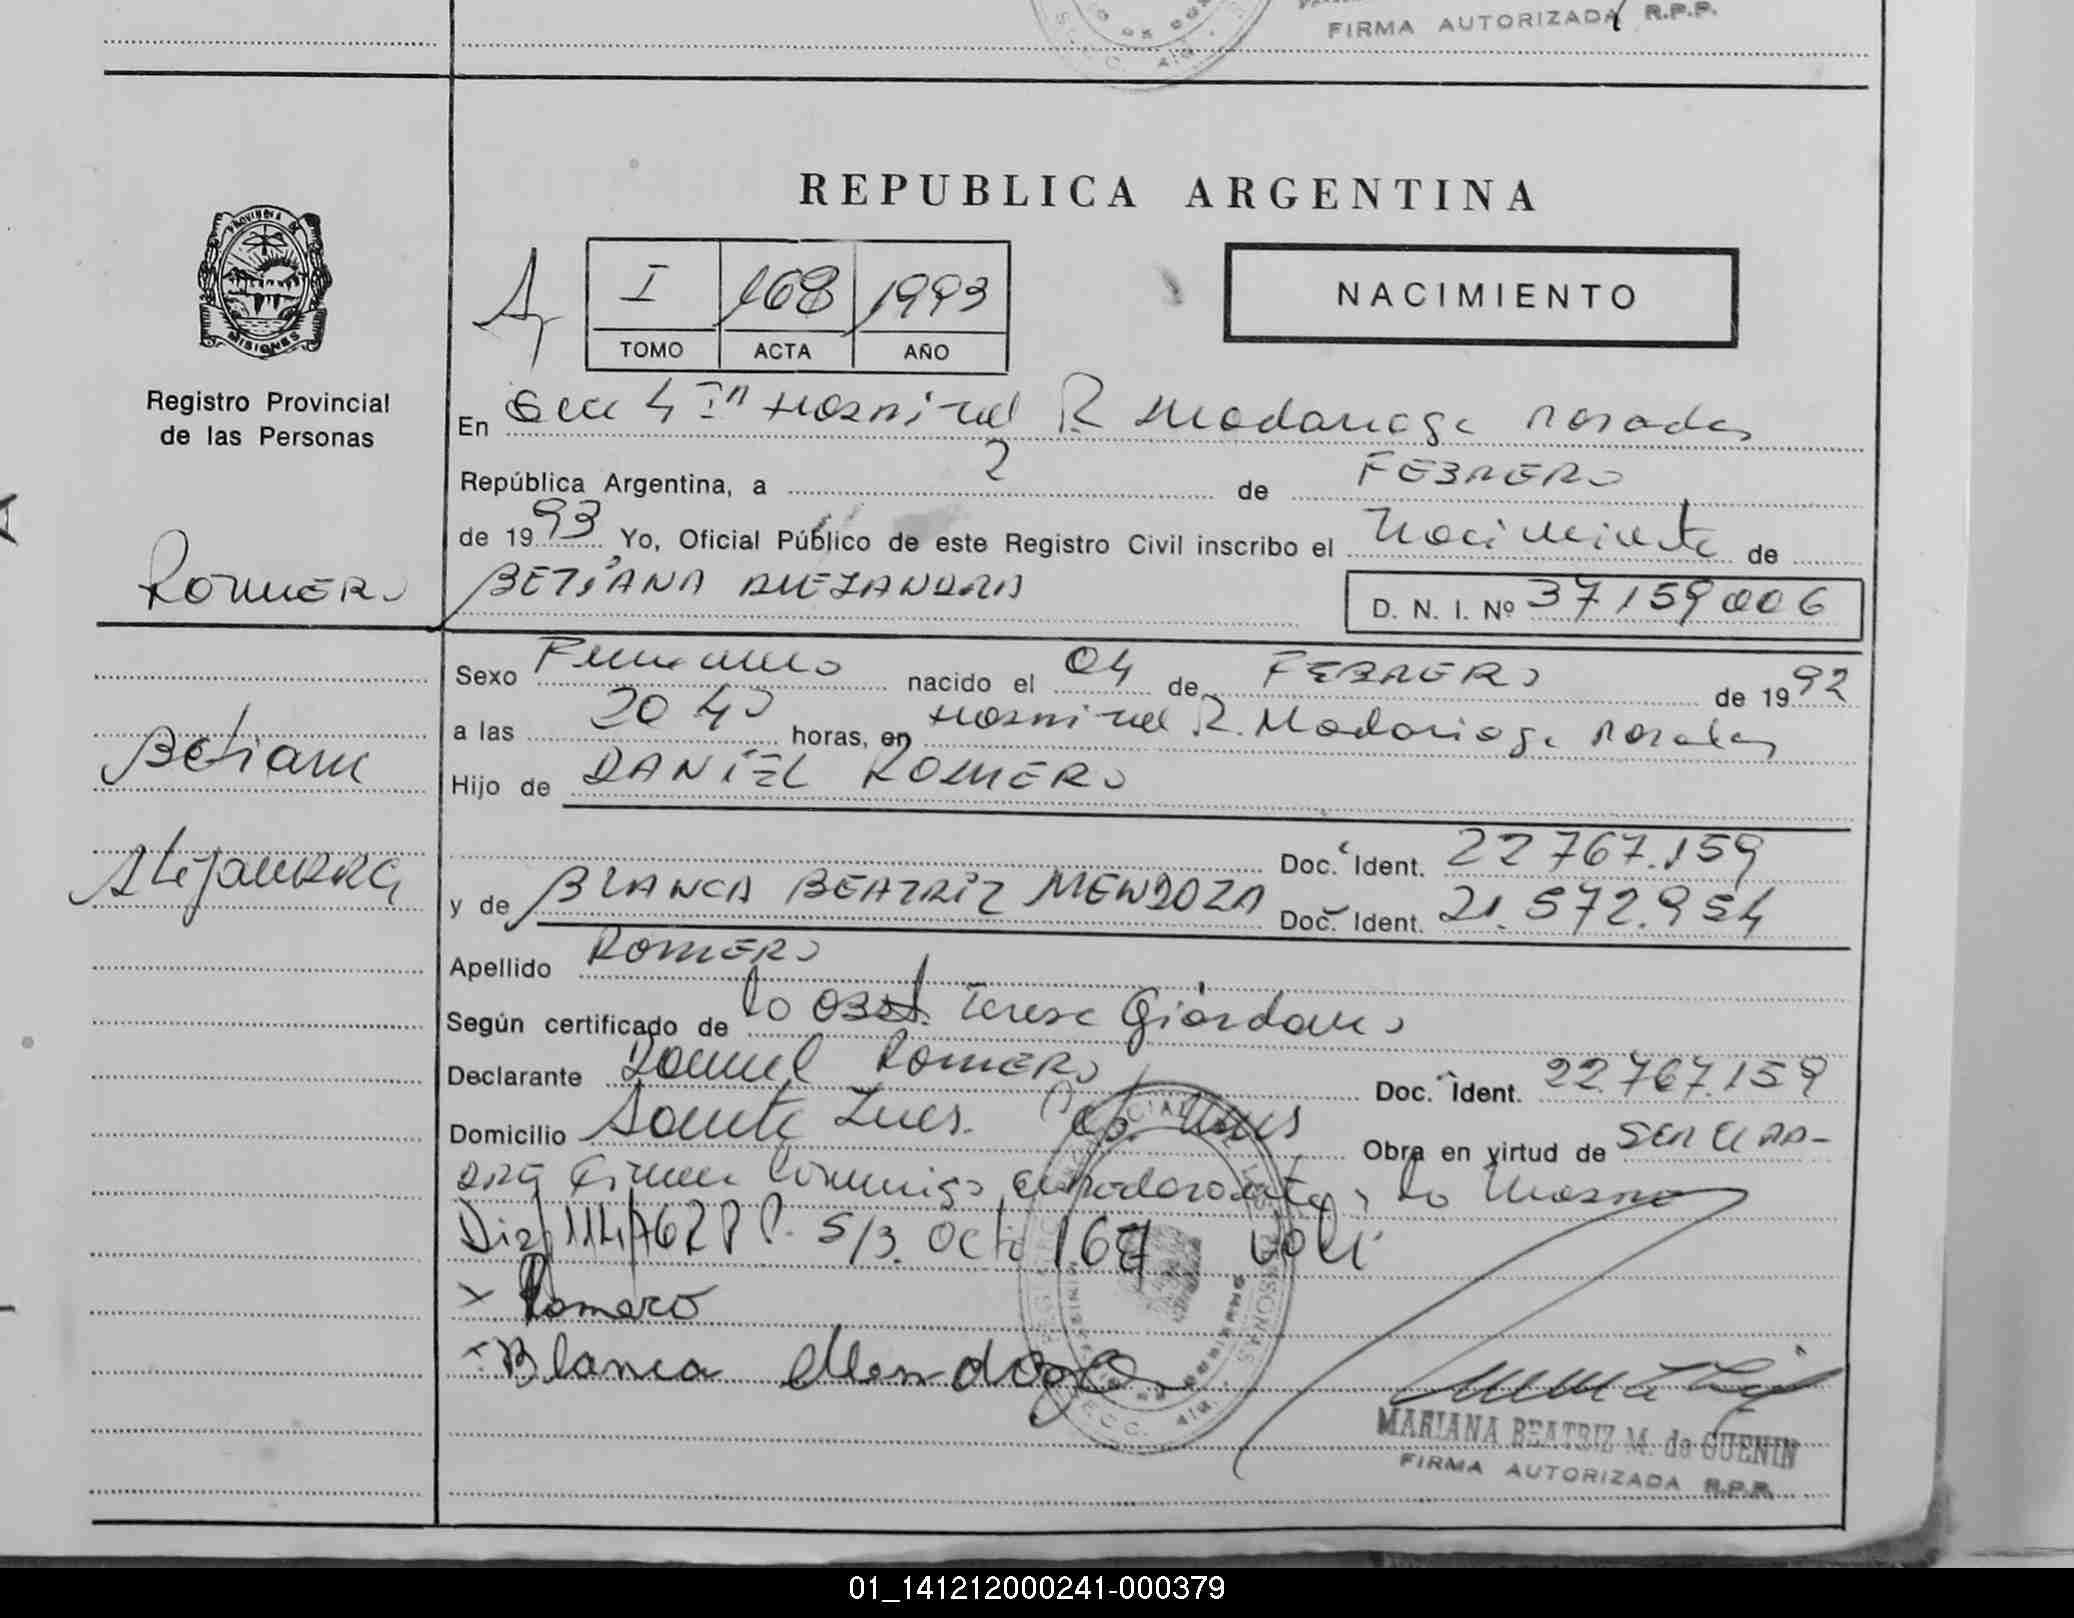 FIRMA AUTORIZADA R.P.P.
REPUBLICA ARGENTINA
PROVINCIA DE
MISIONES
I 168 1993
TOMO ACTA AÑO
NACIMIENTO
Registro Provincial
de las Personas
En Hospital R Madariaga Posadas
República Argentina, a 2 de FEBRERO
de 1993 Yo, Oficial Público de este Registro Civil inscribo el Nacimiento de
ROMERO
BETIANA ALEJANDRA D. N. I. Nº 37159006
Sexo Femenino nacido el 04 de FEBRERO de 1992
a las 20 40 horas, en Hospital R. Madariaga Posadas
Betiana
Hijo de DANIEL ROMERO
Alejandra
Doc. Ident. 22 767.159
y de BLANCA BEATRIZ MENDOZA Doc. Ident. 21.572.954
Apellido ROMERO
Según certificado de la Obst. Teresa Giordano
Declarante Daniel ROMERO Doc. Ident. 22 767.159
Domicilio Santa Ines. Obra en virtud de
Firman conmigo la
5/3. Acta 168 Vale
x Romero
x Blanca Mendoza
MARIANA BEATRIZ M. de GUENIN
FIRMA AUTORIZADA R.P.P.
01_141212000241-000379